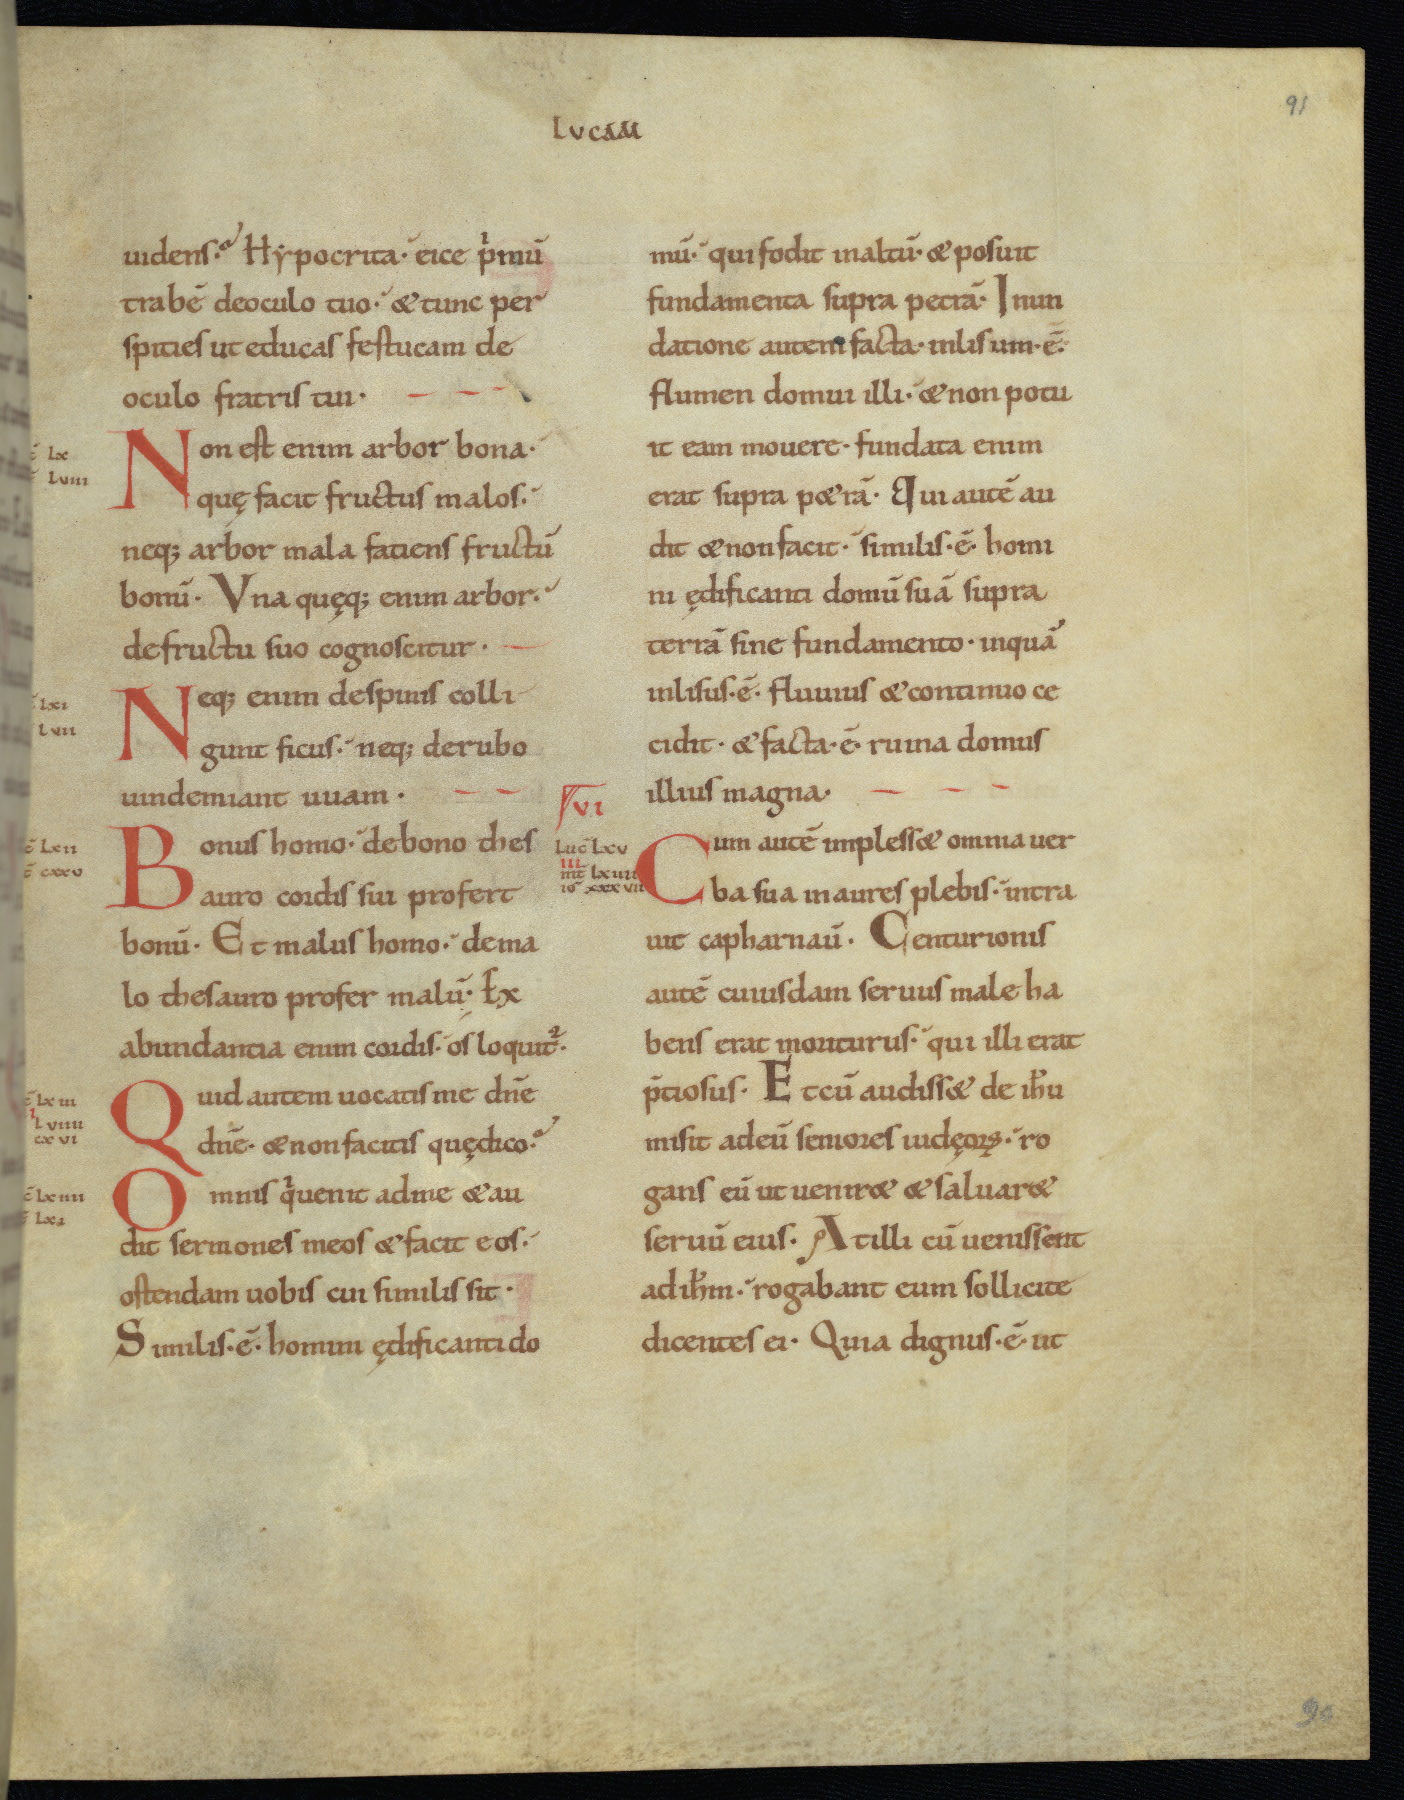 Lucam
91
uidens· Hypocrita· eice p̍mū
trabē deoculo tuo· &tunc per
spities ut educas festucam de
oculo fratris tui·
Non est enim arbor bona·
quę facit fructus malos·
neq; arbor mala fatiens fructū
bonū· Vna quęq; enim arbor·
defructu suo cognoscitur·
Neq; enim despinis colli
gunt ficus· neq; derubo
uindemiant uuam·
Bonus homo· debono thes
auro cordis sui profert
bonū· Et malus homo· dema
lo thesauro profer malū· Ex
abundantia enim cordis· os loquit᷑·
Quid autem uocatis me dn̄e
dn̄e· &nonfacitis quędico·
Omnis q̍uenit adme &au
dit sermones meos &facit eos·
ostendam uobis cui similis sit·
Similis·ē· homini ędificanti do
mū· qui fodit inaltū· &posuit
fundamenta supra petrā· Inun
datione autem facta· inlisum·ē·
flumen domui illi· &non potu
it eam mouere· fundata enim
erat supra p&rā· Qui autē au
dit &nonfacit· similis·ē· homi
ni ędificanti domū suā supra
terrā sine fundamento· inquā
inlisus·ē· fluuius &continuo ce
cidit· &facta·ē· ruina domus
illius magna·
VI
Luc̄ Lxv
III
mt̄ Lxiiii
io xxxvii
Cum autē impless& omnia uer
ba sua in aures plebis· intra
uit capharnaū· Centurionis
autē cuiusdam seruus male ha
bens erat moriturus· qui illi erat
p̄tiosus· Et cū audiss& de ih̄u
misit adeū seniores iudęorꝝ· ro
gans eū ut uenir& &saluar&
seruū eius· At illi cū uenissent
adih̄m· rogabant eum sollicite
dicentes ei· Quia dignus·ē· ut
90